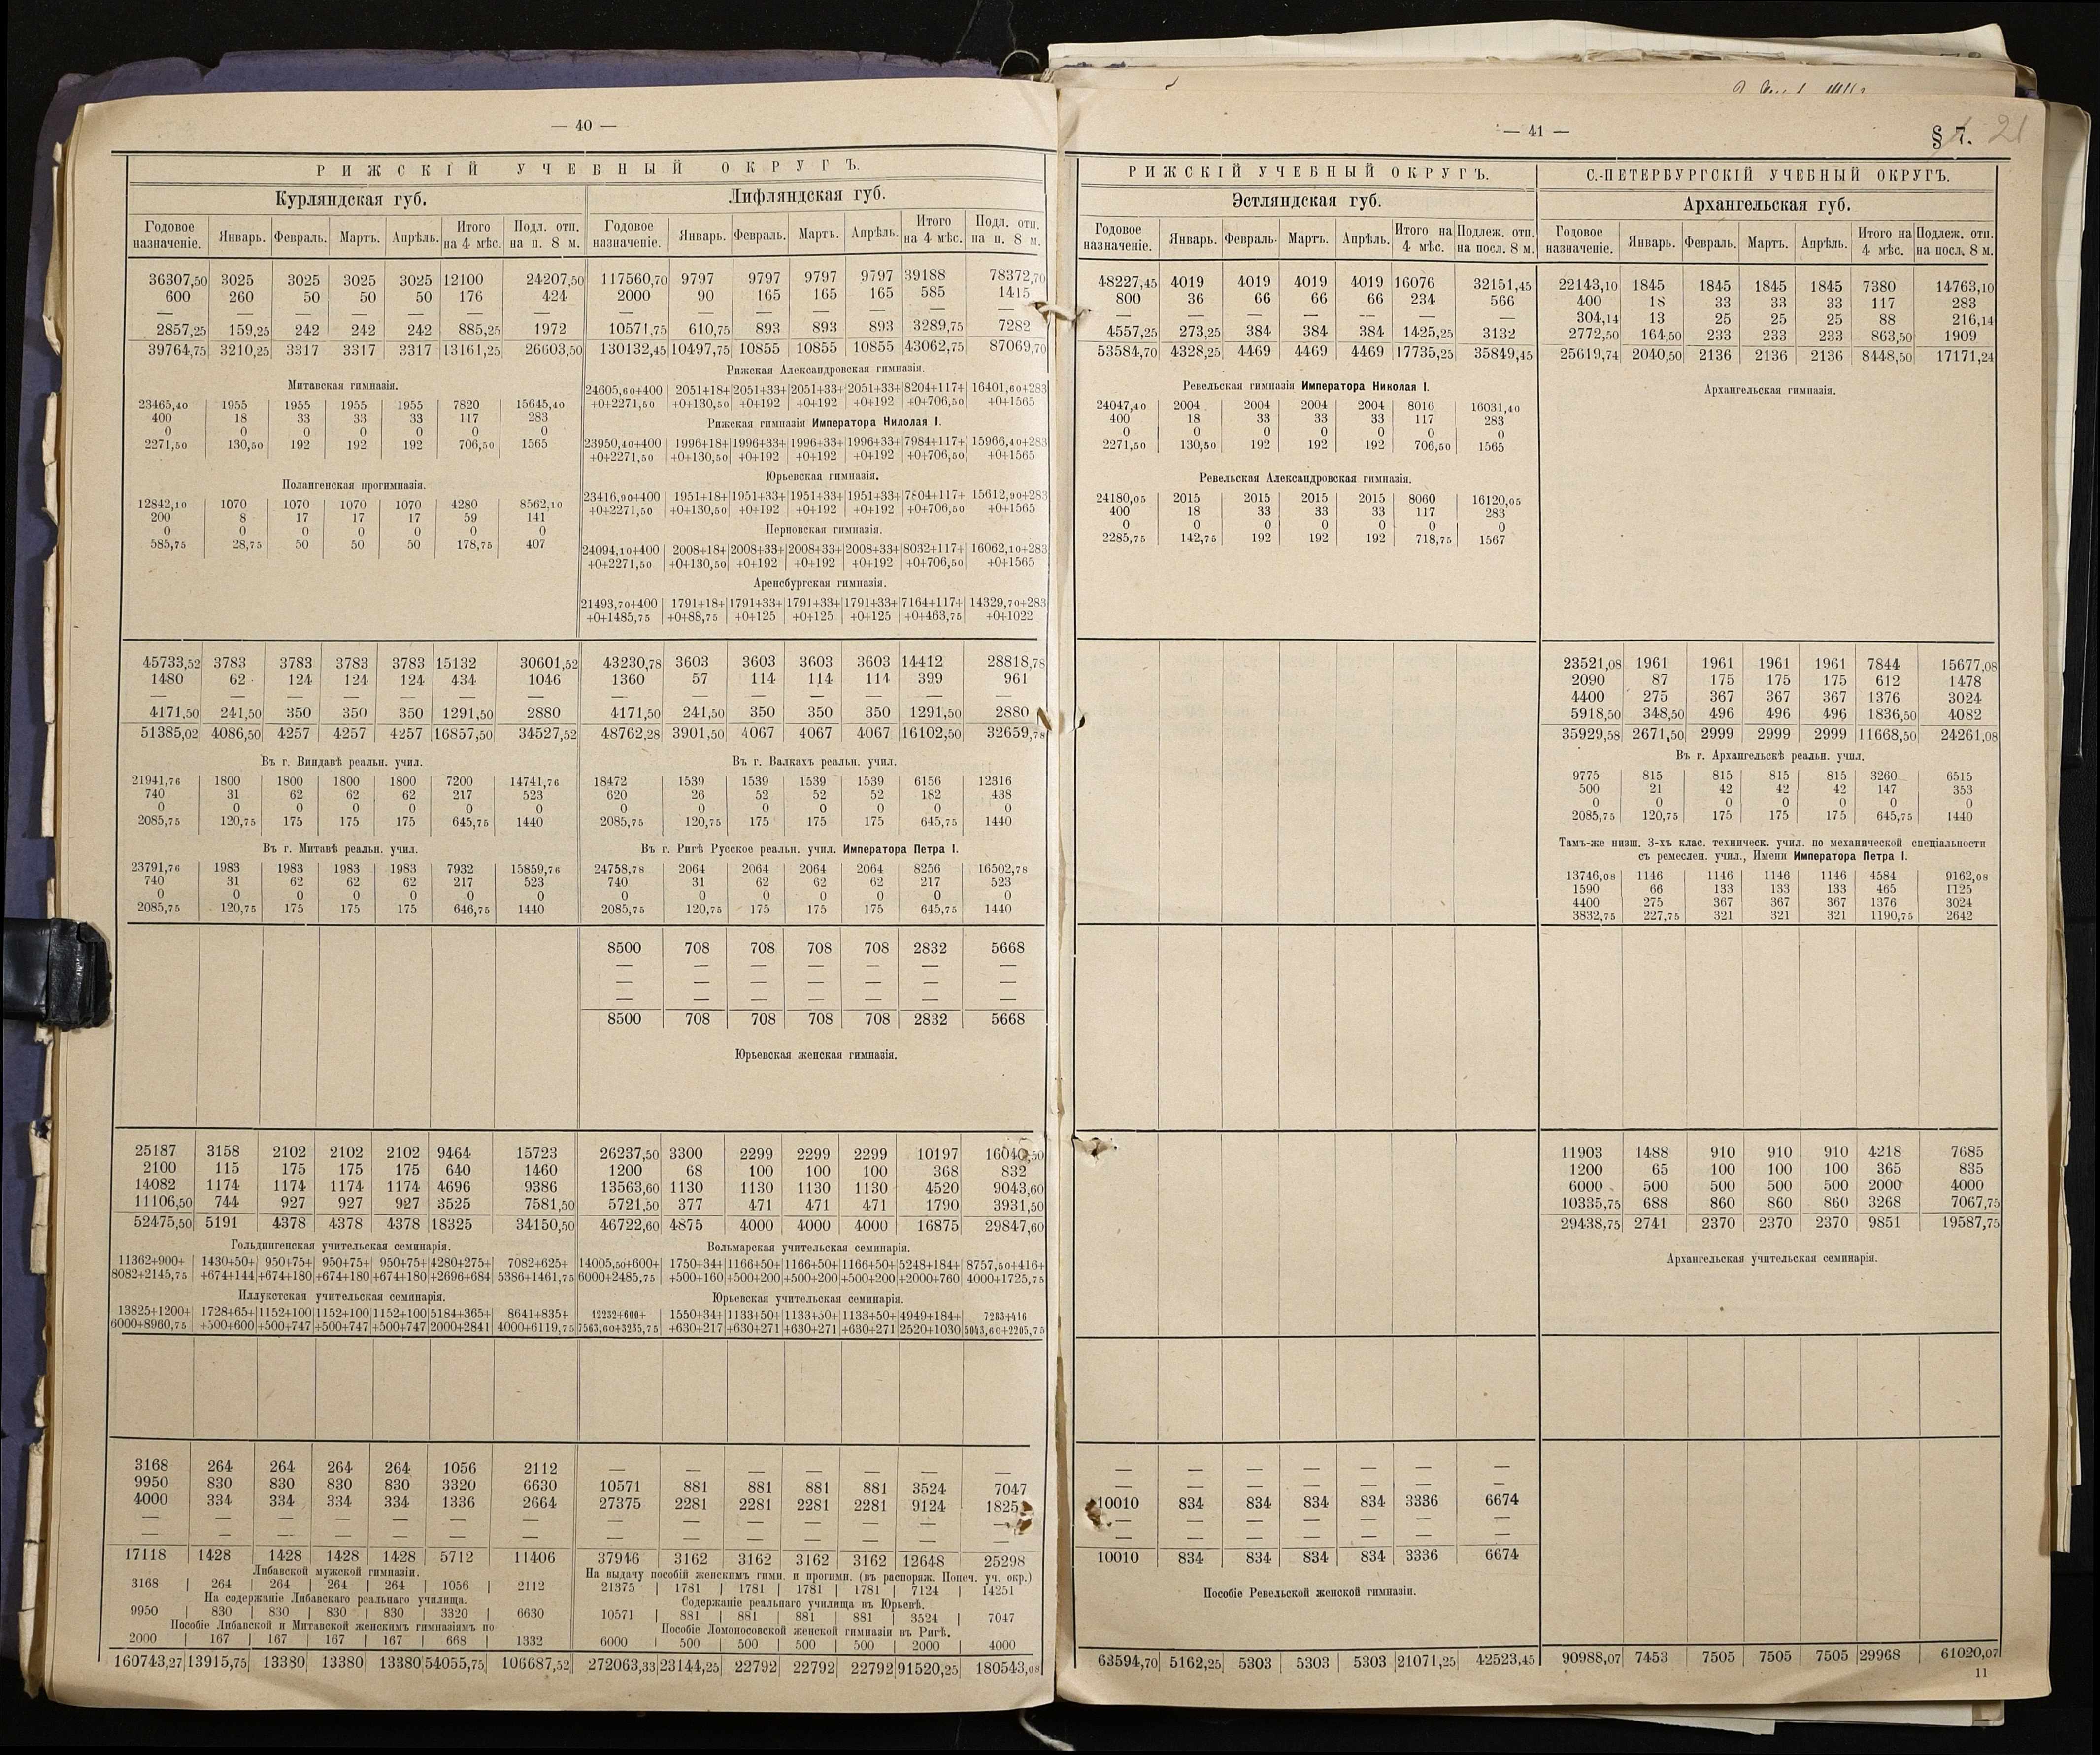 — 40 —
РИЖСКІЙ УЧЕБНЫЙ ОКРУГЪ.
Курляндская губ. Лифляндская губ.
Годовое назначеніе. Январь. Февраль. Мартъ. Апрѣль. Итого на 4 мѣс. Подл. отп. на п. 8 м. Годовое назначеніе. Январь. Февраль. Мартъ. Апрѣль. Итого на 4 мѣс. Подл. отп. на п. 8 м.
36307,50 3025 3025 3025 3025 12100 24207,50 117560,70 9797 9797 9797 9797 39188 78372,70
600 260 50 50 50 176 424 2000 90 165 165 165 585 1415
— — — — — — — — — — — — — —
2857,25 159,25 242 242 242 885,25 1972 10571,75 610,75 893 893 893 3289,75 7282
39764,75 3210,25 3317 3317 3317 13161,25 26603,50 130132,45 10497,75 10855 10855 10855 43062,75 87069,70
Митавская гимназія.
23465,40 1955 1955 1955 1955 7820 15645,40
400 18 33 33 33 117 283
0 0 0 0 0 0 0
2271,50 130,50 192 192 192 706,50 1565
Полангенская прогимназія.
12842,10 1070 1070 1070 1070 4280 8562,10
200 8 17 17 17 59 141
0 0 0 0 0 0 0
585,75 28,75 50 50 50 178,75 407
Рижская Александровская гимназія.
24605,60+400 2051+18+ 2051+33+ 2051+33+ 2051+33+ 8204+117+ 16401,60+283
+0+2271,50 +0+130,50 +0+192 +0+192 +0+192 +0+706,50 +0+1565
Рижская гимназія Императора Нилолая I.
23950,40+400 1996+18+ 1996+33+ 1996+33+ 1996+33+ 7984+117+ 15966,40+283
+0+2271,50 +0+130,50 +0+192 +0+192 +0+192 +0+706,50 +0+1565
Юрьевская гимназія.
23416,90+400 1951+18+ 1951+33+ 1951+33+ 1951+33+ 7804+117+ 15612,90+283
+0+2271,50 +0+130,50 +0+192 +0+192 +0+192 +0+706,50 +0+1565
Перновская гимназія.
24094,10+400 2008+18+ 2008+33+ 2008+33+ 2008+33+ 8032+117+ 16062,10+283
+0+2271,50 +0+130,50 +0+192 +0+192 +0+192 +0+706,50 +0+1565
Аренсбургская гимназія.
21493,70+400 1791+18+ 1791+33+ 1791+33+ 1791+33+ 7164+117+ 14329,70+283
+0+1485,75 +0+88,75 +0+125 +0+125 +0+125 +0+463,75 +0+1022
45733,52 3783 3783 3783 3783 15132 30601,52 43230,78 3603 3603 3603 3603 14412 28818,78
1480 62 124 124 124 434 1046 1360 57 114 114 114 399 961
— — — — — — — — — — — — — —
4171,50 241,50 350 350 350 1291,50 2880 4171,50 241,50 350 350 350 1291,50 2880
51385,02 4086,50 4257 4257 4257 16857,50 34527,52 48762,28 3901,50 4067 4067 4067 16102,50 32659,78
Въ г. Виндавѣ реальн. учил. Въ г. Валкахъ реальн. учил.
21941,76 1800 1800 1800 1800 7200 14741,76 18472 1539 1539 1539 1539 6156 12316
740 31 62 62 62 217 523 620 26 52 52 52 182 438
0 0 0 0 0 0 0 0 0 0 0 0 0 0
2085,75 120,75 175 175 175 645,75 1440 2085,75 120,75 175 175 175 645,75 1440
Въ г. Митавѣ реальн. учил. Въ г. Ригѣ Русское реальн. учил. Императора Петра I.
23791,76 1983 1983 1983 1983 7932 15859,76 24758,78 2064 2064 2064 2064 8256 16502,78
740 31 62 62 62 217 523 740 31 62 62 62 217 523
0 0 0 0 0 0 0 0 0 0 0 0 0 0
2085,75 120,75 175 175 175 646,75 1440 2085,75 120,75 175 175 175 645,75 1440
8500 708 708 708 708 2832 5668
— — — — — — —
— — — — — — —
— — — — — — —
8500 708 708 708 708 2832 5668
Юрьевская женская гимназія.
25187 3158 2102 2102 2102 9464 15723 26237,50 3300 2299 2299 2299 10197 16040,50
2100 115 175 175 175 640 1460 1200 68 100 100 100 368 832
14082 1174 1174 1174 1174 4696 9386 13563,60 1130 1130 1130 1130 4520 9043,60
11106,50 744 927 927 927 3525 7581,50 5721,50 377 471 471 471 1790 3931,50
52475,50 5191 4378 4378 4378 18325 34150,50 46722,60 4875 4000 4000 4000 16875 29847,60
Гольдингенская учительская семинарія. Вольмарская учительская семинарія.
11362+900+ 1430+50+ 950+75+ 950+75+ 950+75+ 4280+275+ 7082+625+ 14005,50+600+ 1750+34+ 1166+50+ 1166+50+ 1166+50+ 5248+184+ 8757,50+416+
8082+2145,75 +674+144 +674+180 +674+180 +674+180 +2696+684 5386+1461,75 6000+2485,75 +500+160 +500+200 +500+200 +500+200 +2000+760 4000+1725,75
Иллукстская учительская семинарія. Юрьевская учительская семинарія.
13825+1200+ 1728+65+ 1152+100 1152+100 1152+100 5184+365+ 8641+835+ 12232+600+ 1550+34+ 1133+50+ 1133+50+ 1133+50+ 4949+184+ 7283+416
6000+8960,75 +500+600 +500+747 +500+747 +500+747 2000+2841 4000+6119,75 7563,60+3235,75 +630+217 +630+271 +630+271 +630+271 2520+1030 5043,60+2205,75
3168 264 264 264 264 1056 2112 — — — — — — —
9950 830 830 830 830 3320 6630 10571 881 881 881 881 3524 7047
4000 334 334 334 334 1336 2664 27375 2281 2281 2281 2281 9124 1825
— — — — — — — — — — — — — —
— — — — — — — — — — — — —
17118 1428 1428 1428 1428 5712 11406 37946 3162 3162 3162 3162 12648 25298
Либавской мужской гимназіи. На выдачу пособій женскимъ гимн. и прогимн. (въ распоряж. Попеч. уч. окр.)
3168 264 264 264 264 1056 2112 21375 1781 1781 1781 1781 7124 14251
На содержаніе Либавскаго реальнаго училища. Содержаніе реальнаго училища въ Юрьевѣ.
9950 830 830 830 830 3320 6630 10571 881 881 881 881 3524 7047
Пособіе Либавской и Митавской женскимъ гимназіямъ по Пособіе Ломоносовской женской гимназіи въ Ригѣ.
2000 167 167 167 167 668 1332 6000 500 500 500 500 2000 4000
160743,27 13915,75 13380 13380 13380 54055,75 106687,52 272063,33 23144,25 22792 22792 22792 91520,25 180543,08
— 41 —
§ 7. 21
РИЖСКІЙ УЧЕБНЫЙ ОКРУГЪ. С.-ПЕТЕРБУРГСКІЙ УЧЕБНЫЙ ОКРУГЪ.
Эстляндская губ. Архангельская губ.
Годовое назначеніе. Январь. Февраль. Мартъ. Апрѣль. Итого на 4 мѣс. Подлеж. отп. на посл. 8 м. Годовое назначеніе. Январь. Февраль. Мартъ. Апрѣль. Итого на 4 мѣс. Подлеж. отп. на посл. 8 м.
48227,45 4019 4019 4019 4019 16076 32151,45 22143,10 1845 1845 1845 1845 7380 14763,10
800 36 66 66 66 234 566 400 18 33 33 33 117 283
— — — — — — — 304,14 13 25 25 25 88 216,14
4557,25 273,25 384 384 384 1425,25 3132 2772,50 164,50 233 233 233 863,50 1909
53584,70 4328,25 4469 4469 4469 17735,25 35849,45 25619,74 2040,50 2136 2136 2136 8448,50 17171,24
Ревельская гимназія Императора Николая I. Архангельская гимназія.
24047,40 2004 2004 2004 2004 8016 16031,40
400 18 33 33 33 117 283
0 0 0 0 0 0 0
2271,50 130,50 192 192 192 706,50 1565
Ревельская Александровская гимназія.
24180,05 2015 2015 2015 2015 8060 16120,05
400 18 33 33 33 117 283
0 0 0 0 0 0 0
2285,75 142,75 192 192 192 718,75 1567
23521,08 1961 1961 1961 1961 7844 15677,08
2090 87 175 175 175 612 1478
4400 275 367 367 367 1376 3024
5918,50 348,50 496 496 496 1836,50 4082
35929,58 2671,50 2999 2999 2999 11668,50 24261,08
Въ г. Архангельскѣ реальн. учил.
9775 815 815 815 815 3260 6515
500 21 42 42 42 147 353
0 0 0 0 0 0 0
2085,75 120,75 175 175 175 645,75 1440
Тамъ-же низш. 3-хъ клас. техническ. учил. по механической спеціальности
съ ремеслен. учил., Имени Императора Петра I.
13746,08 1146 1146 1146 1146 4584 9162,08
1590 66 133 133 133 465 1125
4400 275 367 367 367 1376 3024
3832,75 227,75 321 321 321 1190,75 2642
11903 1488 910 910 910 4218 7685
1200 65 100 100 100 365 835
6000 500 500 500 500 2000 4000
10335,75 688 860 860 860 3268 7067,75
29438,75 2741 2370 2370 2370 9851 19587,75
Архангельская учительская семинарія.
— — — — — — —
— — — — — — —
10010 834 834 834 834 3336 6674
— — — — — — —
— — — — — — —
10010 834 834 834 834 3336 6674
Пособіе Ревельской женской гимназіи.
63594,70 5162,25 5303 5303 5303 21071,25 42523,45 90988,07 7453 7505 7505 7505 29968 61020,07
11